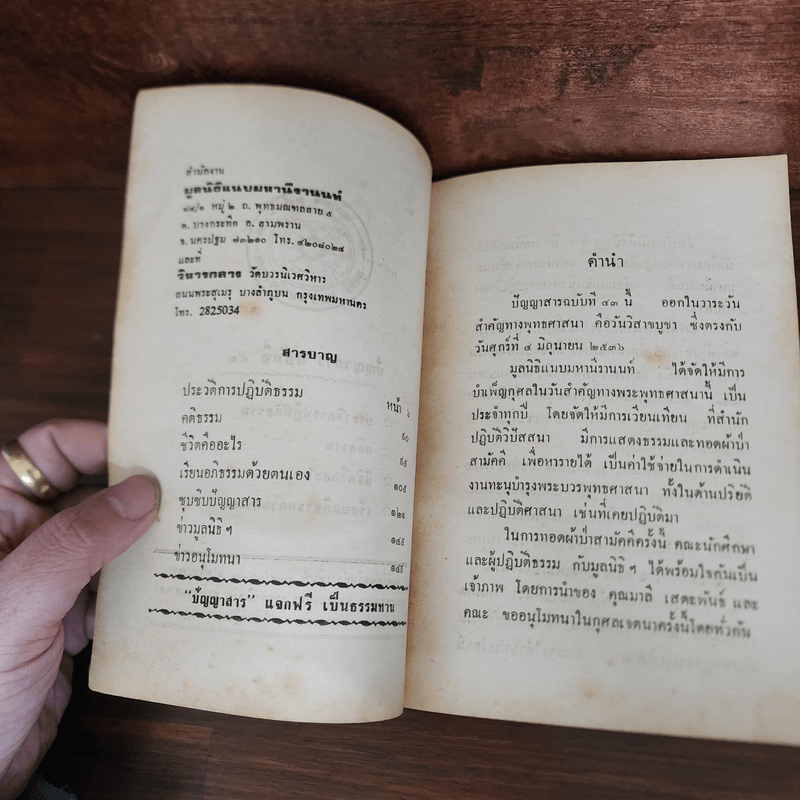 สำนักงาน
มูลนิธิแนบมหานีรานนท์
๘๘/๑ หมู่ ๒ ถ. พุทธมณฑลสาย ๕
ต. บางกระทึก อ. สามพราน
จ. นครปฐม ๗๓๒๑๐ โทร. ๔๒๐๘๐๒๔
และที่
วิหารกลาง วัดบวรนิเวศวิหาร
ถนนพระสุเมรุ บางลำภูบน กรุงเทพมหานคร
โทร. 2825034
สารบาญ
ประวัติการปฏิบัติธรรม หน้า ๖
คติธรรม ๕๐
ชีวิตคืออะไร
เรียนอภิธรรมด้วยตนเอง ๑๐๕
ซุบซิบปัญญาสาร ๑๒๑
ข่าวมูลนิธิ ฯ ๑๔๕
ข่าวอนุโมทนา
"ปัญญาสาร" แจกฟรี เป็นธรรมทาน
คำนำ
ปัญญาสารฉบับที่ ๔๓ นี้ ออกในวาระวัน
สำคัญทางพุทธศาสนา คือวันวิสาขบูชา ซึ่งตรงกับ
วันศุกร์ที่ ๔ มิถุนายน ๒๕๓๖
มูลนิธิแนบมหานีรานนท์ ได้จัดให้มีการ
บำเพ็ญกุศลในวันสำคัญทางพระพุทธศาสนานี้ เป็น
ประจำทุกปี โดยจัดให้มีการเวียนเทียน ที่สำนัก
ปฏิบัติวิปัสสนา มีการแสดงธรรมและทอดผ้าป่า
สามัคคี เพื่อหารายได้ เป็นค่าใช้จ่ายในการดำเนิน
งานทะนุบำรุงพระบวรพุทธศาสนา ทั้งในด้านปริยัติ
และปฏิบัติศาสนา เช่นที่เคยปฏิบัติมา
ในการทอดผ้าป่าสามัคคีครั้งนี้ คณะนักศึกษา
และผู้ปฏิบัติธรรม กับมูลนิธิ ฯ ได้พร้อมใจกันเป็น
เจ้าภาพ โดยการนำของ คุณมาลี เสตะพันธ์ และ
คณะ ขออนุโมทนาในกุศลเจตนาครั้งนี้โดยทั่วกัน